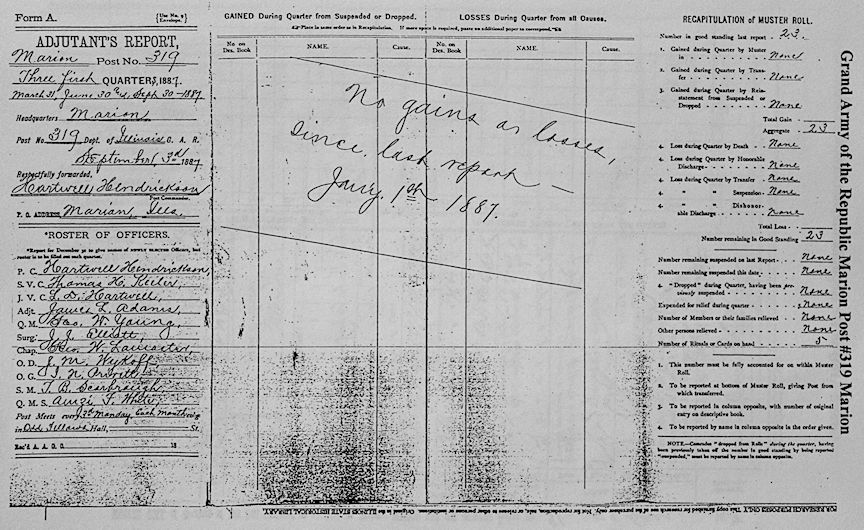 Form A.
{Use No. 9 Envelope.}
ADJUTANT'S REPORT,
Marion Post No. 319
Three first QUARTERS, 1887.
March 31, June 30th, Sept 30-1887
Headquarters Marion
Post No. 319 Dept. of Illinois G. A. R.
September 3rd 1887
Respectfully forwarded,
Hartwell Hendrickson
Post Commander.
P. O. ADDRESS, Marion, Ills
*ROSTER OF OFFICERS.
*Report for December 30 to give names of NEWLY ELECTED Officers, but
roster is to be filled out each quarter.
P. C. Hartwell Hendrickson,
S. V. C. Thomas H.
J. V. C. L. D. Hartwell,
Adjt. James L. Adams
Q. M. Geo. W. Young,
Surg. J. J. Elliott,
Chap. Geo. W. Lancaster
O. D. J. M. Wykoff
O. G. J. N.
S. M. T. B. Scarbrough
Q. M. S. T. White
Post Meets every 3rd Monday Each Month
in Odd Fellows Hall, St.
Rec'd A. A. G. O. 18
GAINED During Quarter from Suspended or Dropped.
LOSSES During Quarter from all Causes.
Place in same order as in Recapitulation. If more space is required, paste on additional paper to correspond.
No on Des. Book
NAME.
Cause.
No. on Des. Book
NAME.
Cause.
No gains or losses,
since last report -
Jany. 1st 1887.
RECAPITULATION of MUSTER ROLL.
Number in good standing last report 23.
1. Gained during Quarter by Muster
in None
2. Gained during Quarter by Trans-
fer None
3. Gained during Quarter by Rein-
statement from Suspended or
Dropped None
Total Gain
Aggregate 23
4. Loss during Quarter by Death None
4. Loss during Quarter by Honorable
Discharge None
4. Loss during Quarter by Transfer None
4. " " Suspension None
4. " " Dishonor-
able Discharge None
Total Loss
Number remaining in Good Standing 23
Number remaining suspended on last Report None
Number remaining suspended this date None
4. "Dropped" during Quarter, having been pre-
viously suspended None
Expended for relief during quarter None
Number of Members or their families relieved None
Other persons relieved None
Number of Rituals or Cards on hand 5
1. This number must be fully accounted for on within Muster
Roll.
2. To be reported at bottom of Muster Roll, giving Post from
which transferred.
3. To be reported in column opposite, with number of original
entry on descriptive book.
4. To be reported by name in column opposite in the order given.
NOTE.—Comrades "dropped from Rolls" during the quarter, having
been previously taken off the number in good standing by being reported
"suspended," must be reported by name in column opposite.
Grand Army of the Republic Marion Post #319 Marion
FOR RESEARCH PURPOSES ONLY. This copy furnished for research use of the patron only. Not for reproduction, sale, or release to other persons or institutions. Original in the ILLINOIS STATE HISTORICAL LIBRARY.